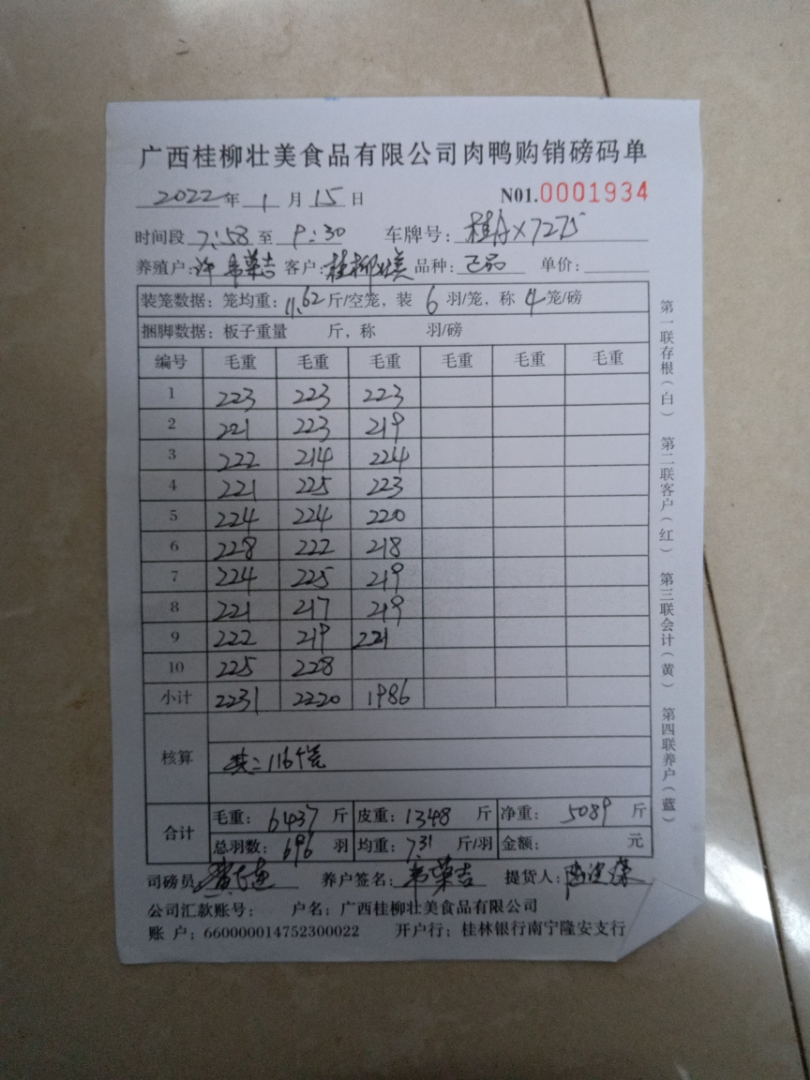 广西桂柳壮美食品有限公司肉鸭购销磅码单
2022年 1 月 15 日 N01.0001934
时间段 7:58 至 9:30 车牌号: 桂AX7275
养殖户: 韦荣吉 客户: 桂柳壮美 品种: 正品 单价:
装笼数据: 笼均重: 11.62 斤/空笼, 装 6 羽/笼, 称 4 笼/磅
捆脚数据: 板子重量 斤, 称 羽/磅
编号 毛重 毛重 毛重 毛重 毛重 毛重
1 223 223 223
2 221 223 219
3 222 214 224
4 221 225 223
5 224 224 220
6 228 222 218
7 224 225 219
8 221 217 219
9 222 219 221
10 225 228
小计 2231 2220 1986
核算
共: 116个笼
合计 毛重: 6437 斤 皮重: 1348 斤 净重: 5089 斤
总羽数: 696 羽 均重: 7.31 斤/羽 金额: 元
司磅员: 养户签名: 韦荣吉 提货人:
公司汇款账号: 户名: 广西桂柳壮美食品有限公司
账 户: 660000014752300022 开户行: 桂林银行南宁隆安支行
第一联存根(白) 第二联客户(红) 第三联会计(黄) 第四联养户(蓝)